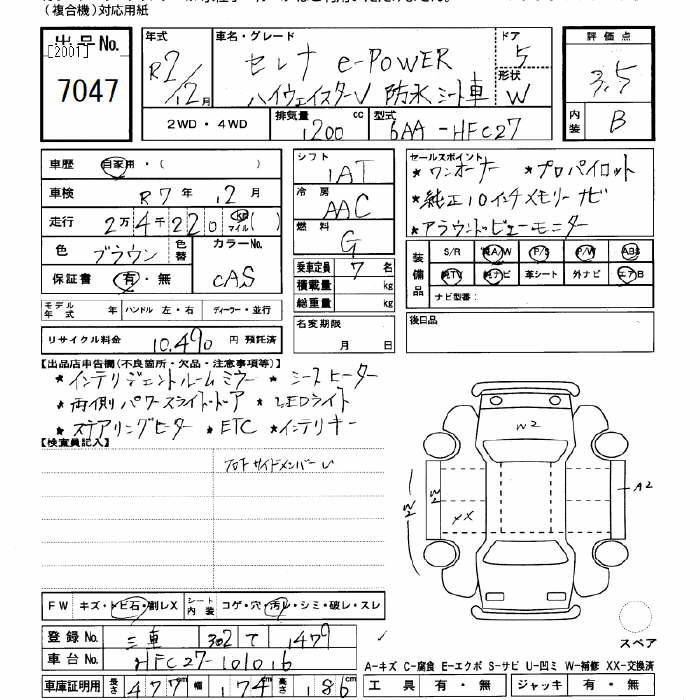 （複合機）対応用紙
出品No.
[2001]
7047
年式
R2/12月
車名・グレード
セレナ e-POWER
ハイウェイスターV 防水シート車
ドア
5
形状
W
2WD・4WD
排気量 1200 cc
型式 6AA-HFC27
評価点
3.5
内装
B
車歴 自家用・( )
車検 R7年 12月
走行 2万4千220 km マイル( )
色 ブラウン 色替
カラーNo. CAS
保証書 有・無
モデル年式 年 ハンドル 左・右 ディーラー・並行
リサイクル料金 10,490 円 預託済
シフト IAT
冷房 AAC
燃料 G
乗車定員 7 名
積載量 kg
総重量 kg
名変期限
月 日
セールスポイント
*ワンオーナー *プロパイロット
*純正10インチメモリーナビ
*アラウンドビューモニター
装備品
S/R 純A/W P/S P/W ABS
純TV 純ナビ 革シート 外ナビ エアB
ナビ型番：
後日品
【出品店申告欄(不良箇所・欠品・注意事項等)】
*インテリジェントルームミラー *シートヒーター
*両側パワースライドドア *LEDライト
*ステアリングヒーター *ETC *インテリキー
【検査員記入】
サイドメンバー
FW キズ・トビ石・割レX
シート内装 コゲ・穴・汚レ・シミ・破レ・スレ
登録No. 三重 302 て 1479
車台No. HFC27-101016
車庫証明用 長さ 477cm 幅 174cm 高さ 186cm
W2
W2
W2
XX
A2
スペア
A-キズ C-腐食 E-エクボ S-サビ U-凹ミ W-補修 XX-交換済
工具 有・無 ジャッキ 有・無